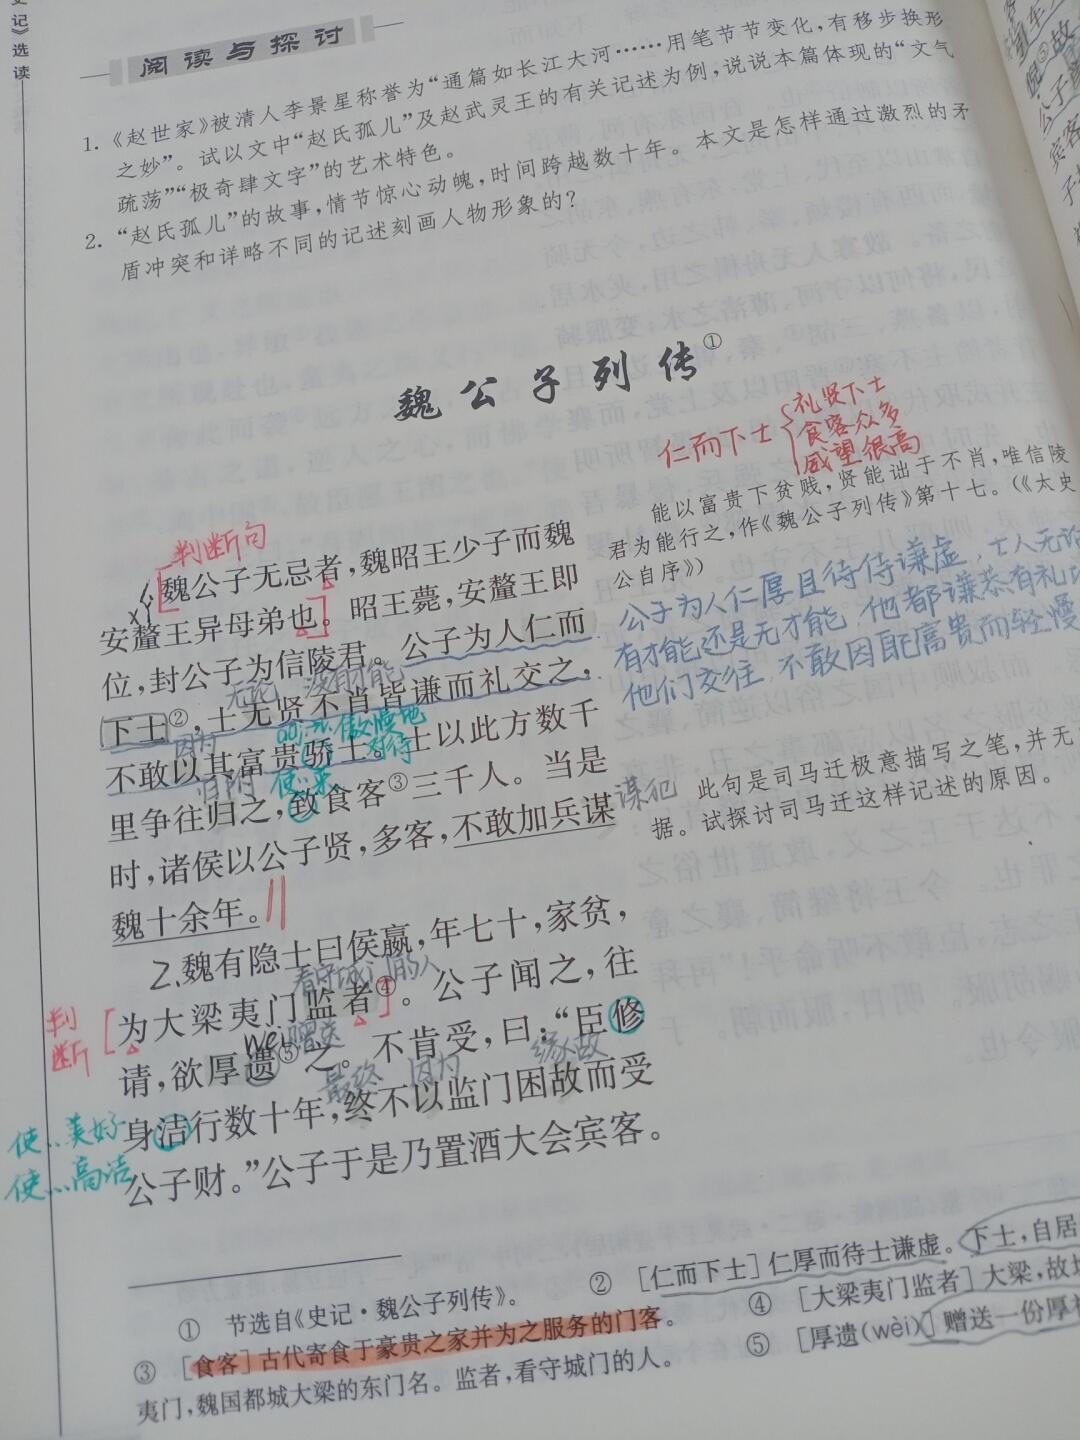 记》选读
阅读与探讨
1. 《赵世家》被清人李景星称誉为“通篇如长江大河……用笔节节变化，有移步换形
之妙”。试以文中“赵氏孤儿”及赵武灵王的有关记述为例，说说本篇体现的“文气
疏荡”“极奇肆文字”的艺术特色。
2. “赵氏孤儿”的故事，情节惊心动魄，时间跨越数十年。本文是怎样通过激烈的矛
盾冲突和详略不同的记述刻画人物形象的？
魏公子列传①
仁而下士
礼贤下士
食客众多
威望很高
能以富贵下贫贱，贤能诎于不肖，唯信陵
君为能行之，作《魏公子列传》第十七。（《太史
公自序》）
判断句
魏公子无忌者，魏昭王少子而魏
安釐王异母弟也。昭王薨，安釐王即
位，封公子为信陵君。公子为人仁而
无论 没有才能
下士②，士无贤不肖皆谦而礼交之，
因为
傲慢地
对待
不敢以其富贵骄士。士以此方数千
归附 使…来
里争往归之，致食客③三千人。当是
时，诸侯以公子贤，多客，不敢加兵谋
谋犯
魏十余年。
公子为人仁厚且待侍谦虚，士人无论
有才能还是无才能，他都谦恭有礼地
他们交往，不敢因自己富贵而轻慢
此句是司马迁极意描写之笔，并无
据。试探讨司马迁这样记述的原因。
2.魏有隐士曰侯嬴，年七十，家贫，
看守城门的人
为大梁夷门监者④。公子闻之，往
判断
wèi 赠送
请，欲厚遗⑤之。不肯受，曰：“臣修
最终 因为 缘故
身洁行数十年，终不以监门困故而受
使…美好
使…高洁
公子财。”公子于是乃置酒大会宾客。
① 节选自《史记·魏公子列传》。 ② ［仁而下士］仁厚而待士谦虚。下士，自居
③ ［食客］古代寄食于豪贵之家并为之服务的门客。 ④ ［大梁夷门监者］大梁，故
夷门，魏国都城大梁的东门名。监者，看守城门的人。 ⑤ ［厚遗(wèi)］赠送一份厚